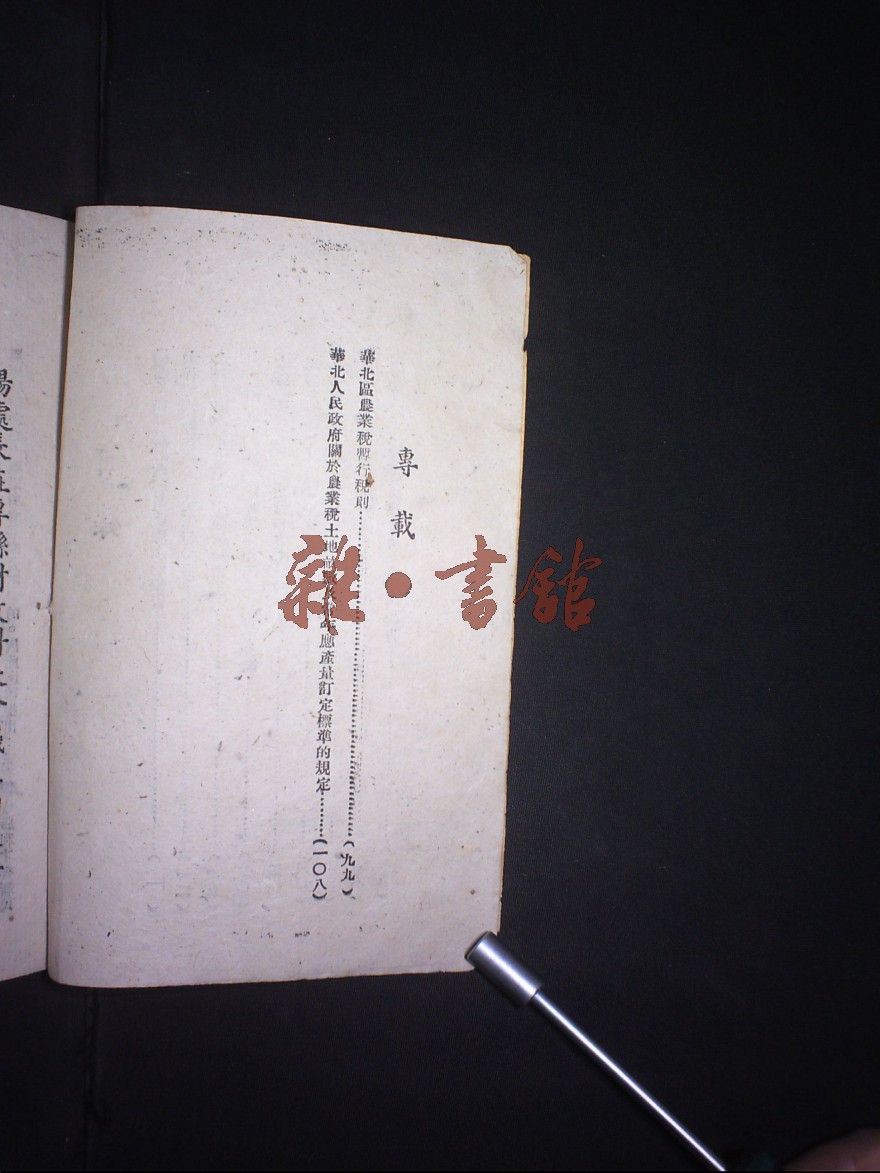 專載
華北區農業稅暫行稅則…………(九九)
華北人民政府關於農業稅土地
應產量訂定標準的規定…………(一〇八)
雜·書館